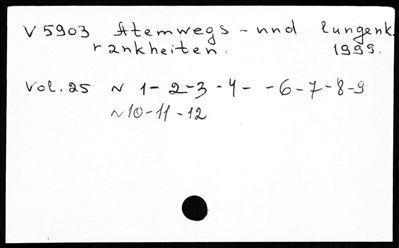 V 5903 Atemwegs - und Lungenk.
rankheiten. 1999.
Vol. 25 ~ 1 - 2 - 3 - 4 - - 6 - 7 - 8 - 9
~ 10 - 11 - 12